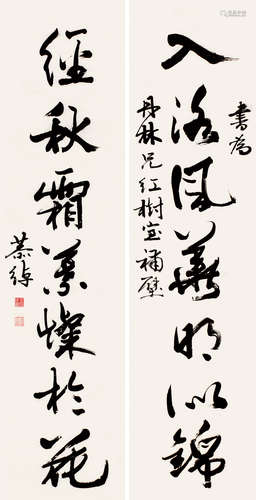 書為
入洛風華明似錦
丹林兄紅樹室補壁
經秋霜葉燦於花